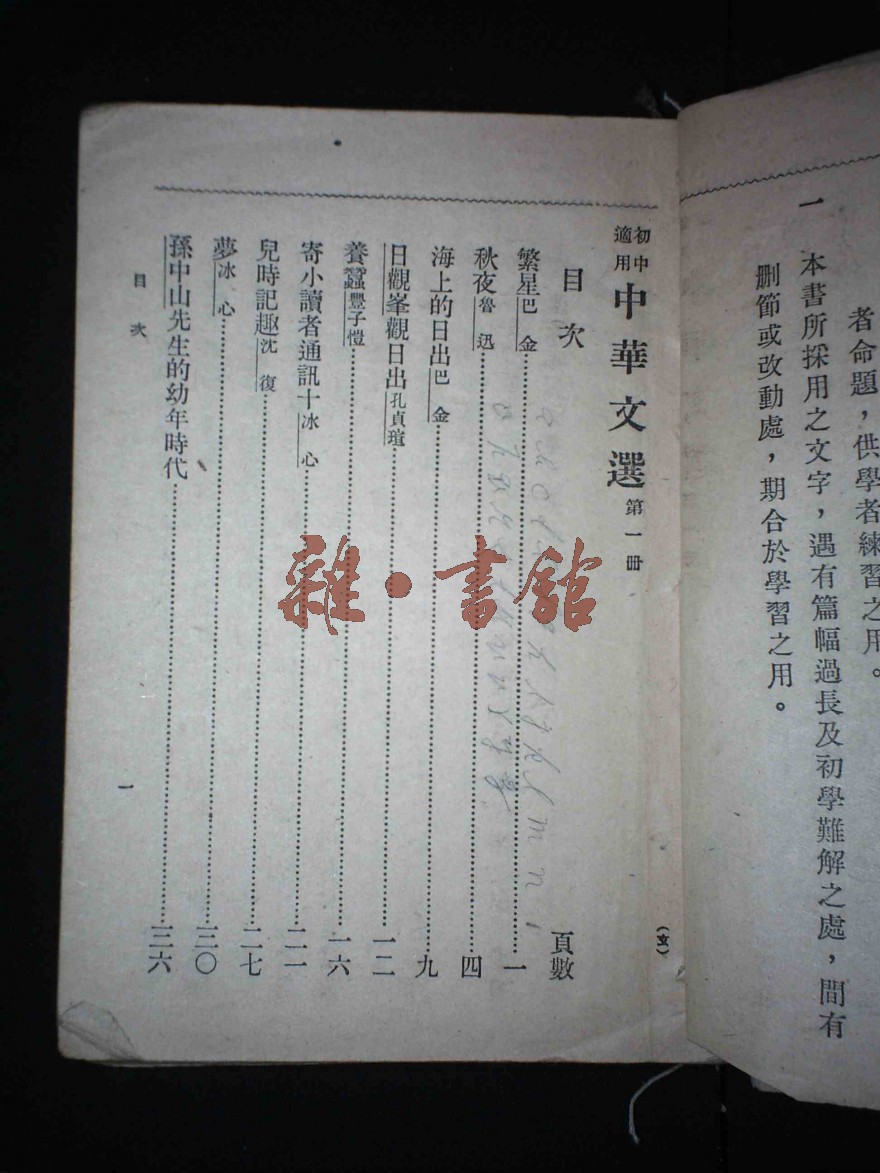 者命題，供學者練習之用。
一　本書所採用之文字，遇有篇幅過長及初學難解之處，間有
刪節或改動處，期合於學習之用。
初中適用 中華文選 第一冊
(文)
目次　頁數
繁星 巴金……一
秋夜 魯迅……四
海上的日出 巴金……九
日觀峯觀日出 孔貞瑄……一二
養蠶 豐子愷……一六
寄小讀者通訊十 冰心……二一
兒時記趣 沈復……二七
夢 冰心……三〇
孫中山先生的幼年時代……三六
目次　一
雜·書館